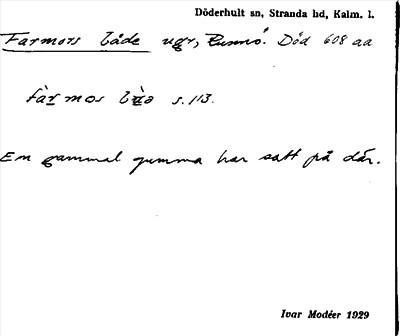 Döderhult sn, Stranda hd, Kalm. l.
Farmors både ugr, Runnö. Död 608 aa
fàr mos s. 113.
En gammal gumma har satt på där.
Ivar Modéer 1929